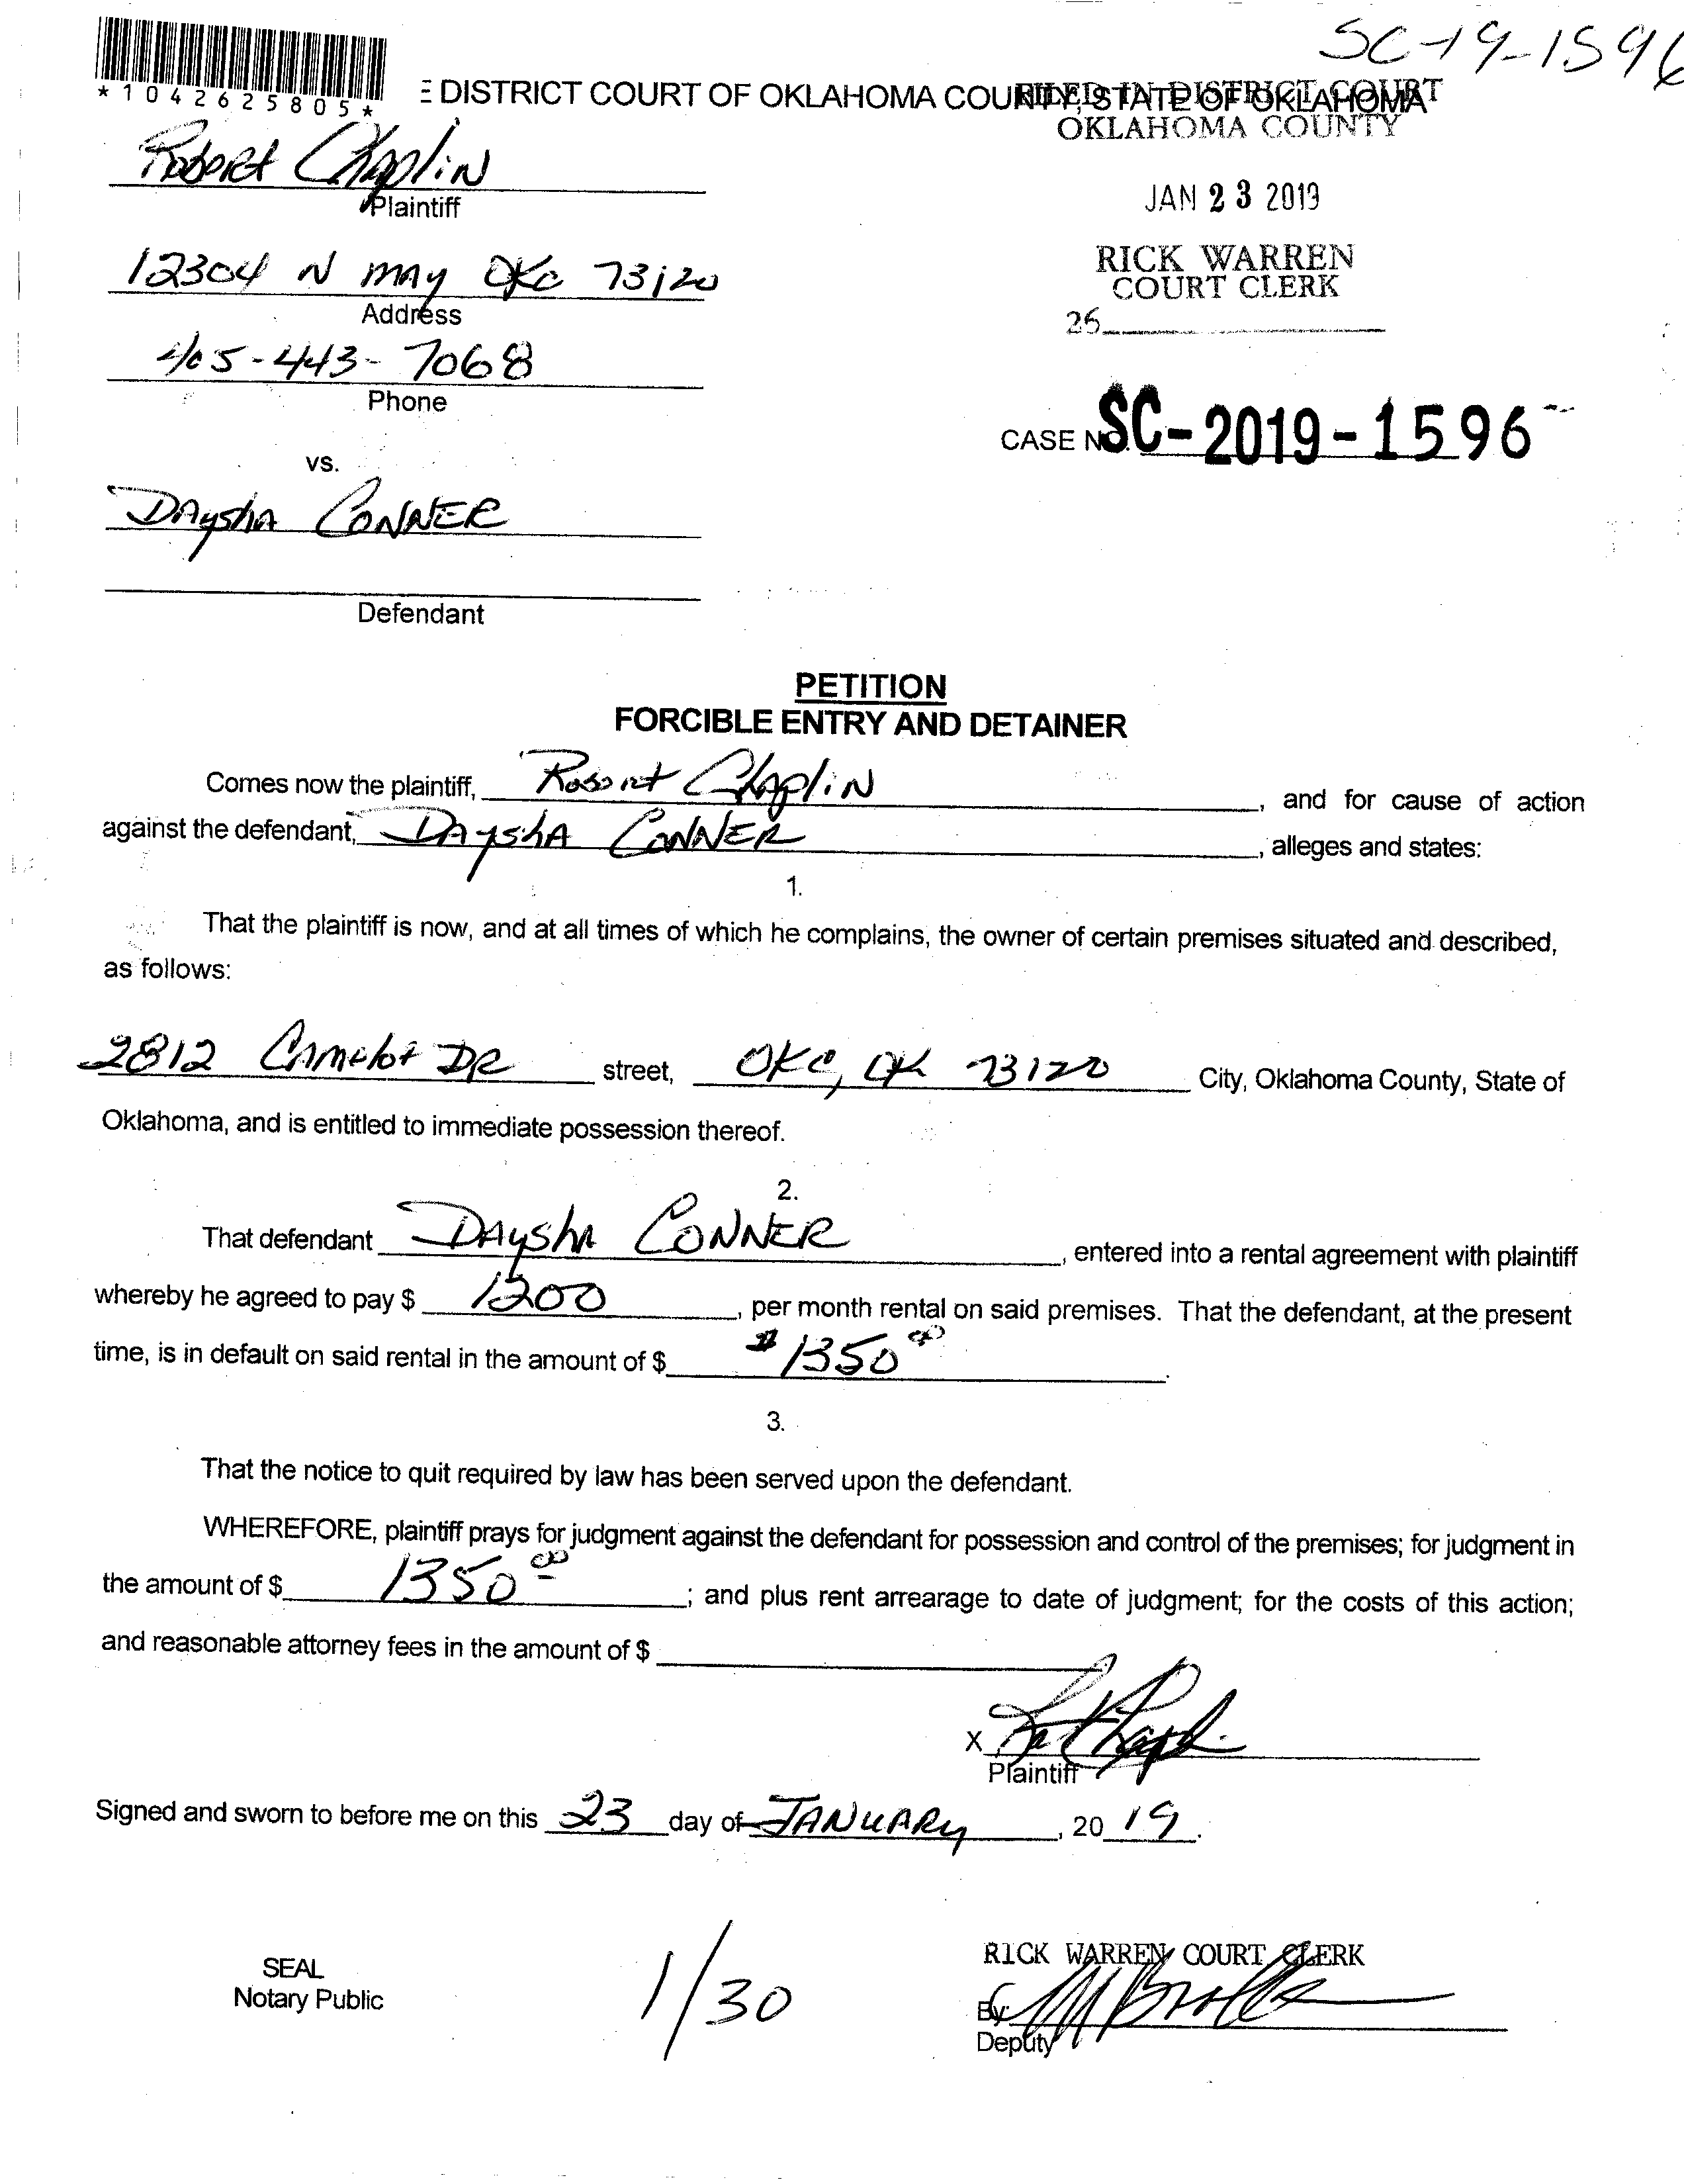 SC-19-1596
*1042625805*
E DISTRICT COURT OF OKLAHOMA COUNTY, STATE OF OKLAHOMA
FILED IN DISTRICT COURT
OKLAHOMA COUNTY
Robert Chaplin
Plaintiff
JAN 23 2019
12304 N MAY OKC 73120
Address
RICK WARREN
COURT CLERK
26
405-443-7068
Phone
CASE NO. SC-2019-1596
vs.
DAyshA CONNER
Defendant
PETITION
FORCIBLE ENTRY AND DETAINER
Comes now the plaintiff, Robert Chaplin, and for cause of action
against the defendant, DAyshA CONNER, alleges and states:
1.
That the plaintiff is now, and at all times of which he complains, the owner of certain premises situated and described,
as follows:
2812 Camelot DR street, OKC, OK 73120 City, Oklahoma County, State of
Oklahoma, and is entitled to immediate possession thereof.
2.
That defendant DAyshA CONNER, entered into a rental agreement with plaintiff
whereby he agreed to pay $ 1200, per month rental on said premises. That the defendant, at the present
time, is in default on said rental in the amount of $ $1350 00.
3.
That the notice to quit required by law has been served upon the defendant.
WHEREFORE, plaintiff prays for judgment against the defendant for possession and control of the premises; for judgment in
the amount of $ 1350 00; and plus rent arrearage to date of judgment; for the costs of this action;
and reasonable attorney fees in the amount of $
X
Plaintiff
Signed and sworn to before me on this 23 day of JANUARY, 20 19.
SEAL
Notary Public
1/30
RICK WARREN COURT CLERK
By:
Deputy